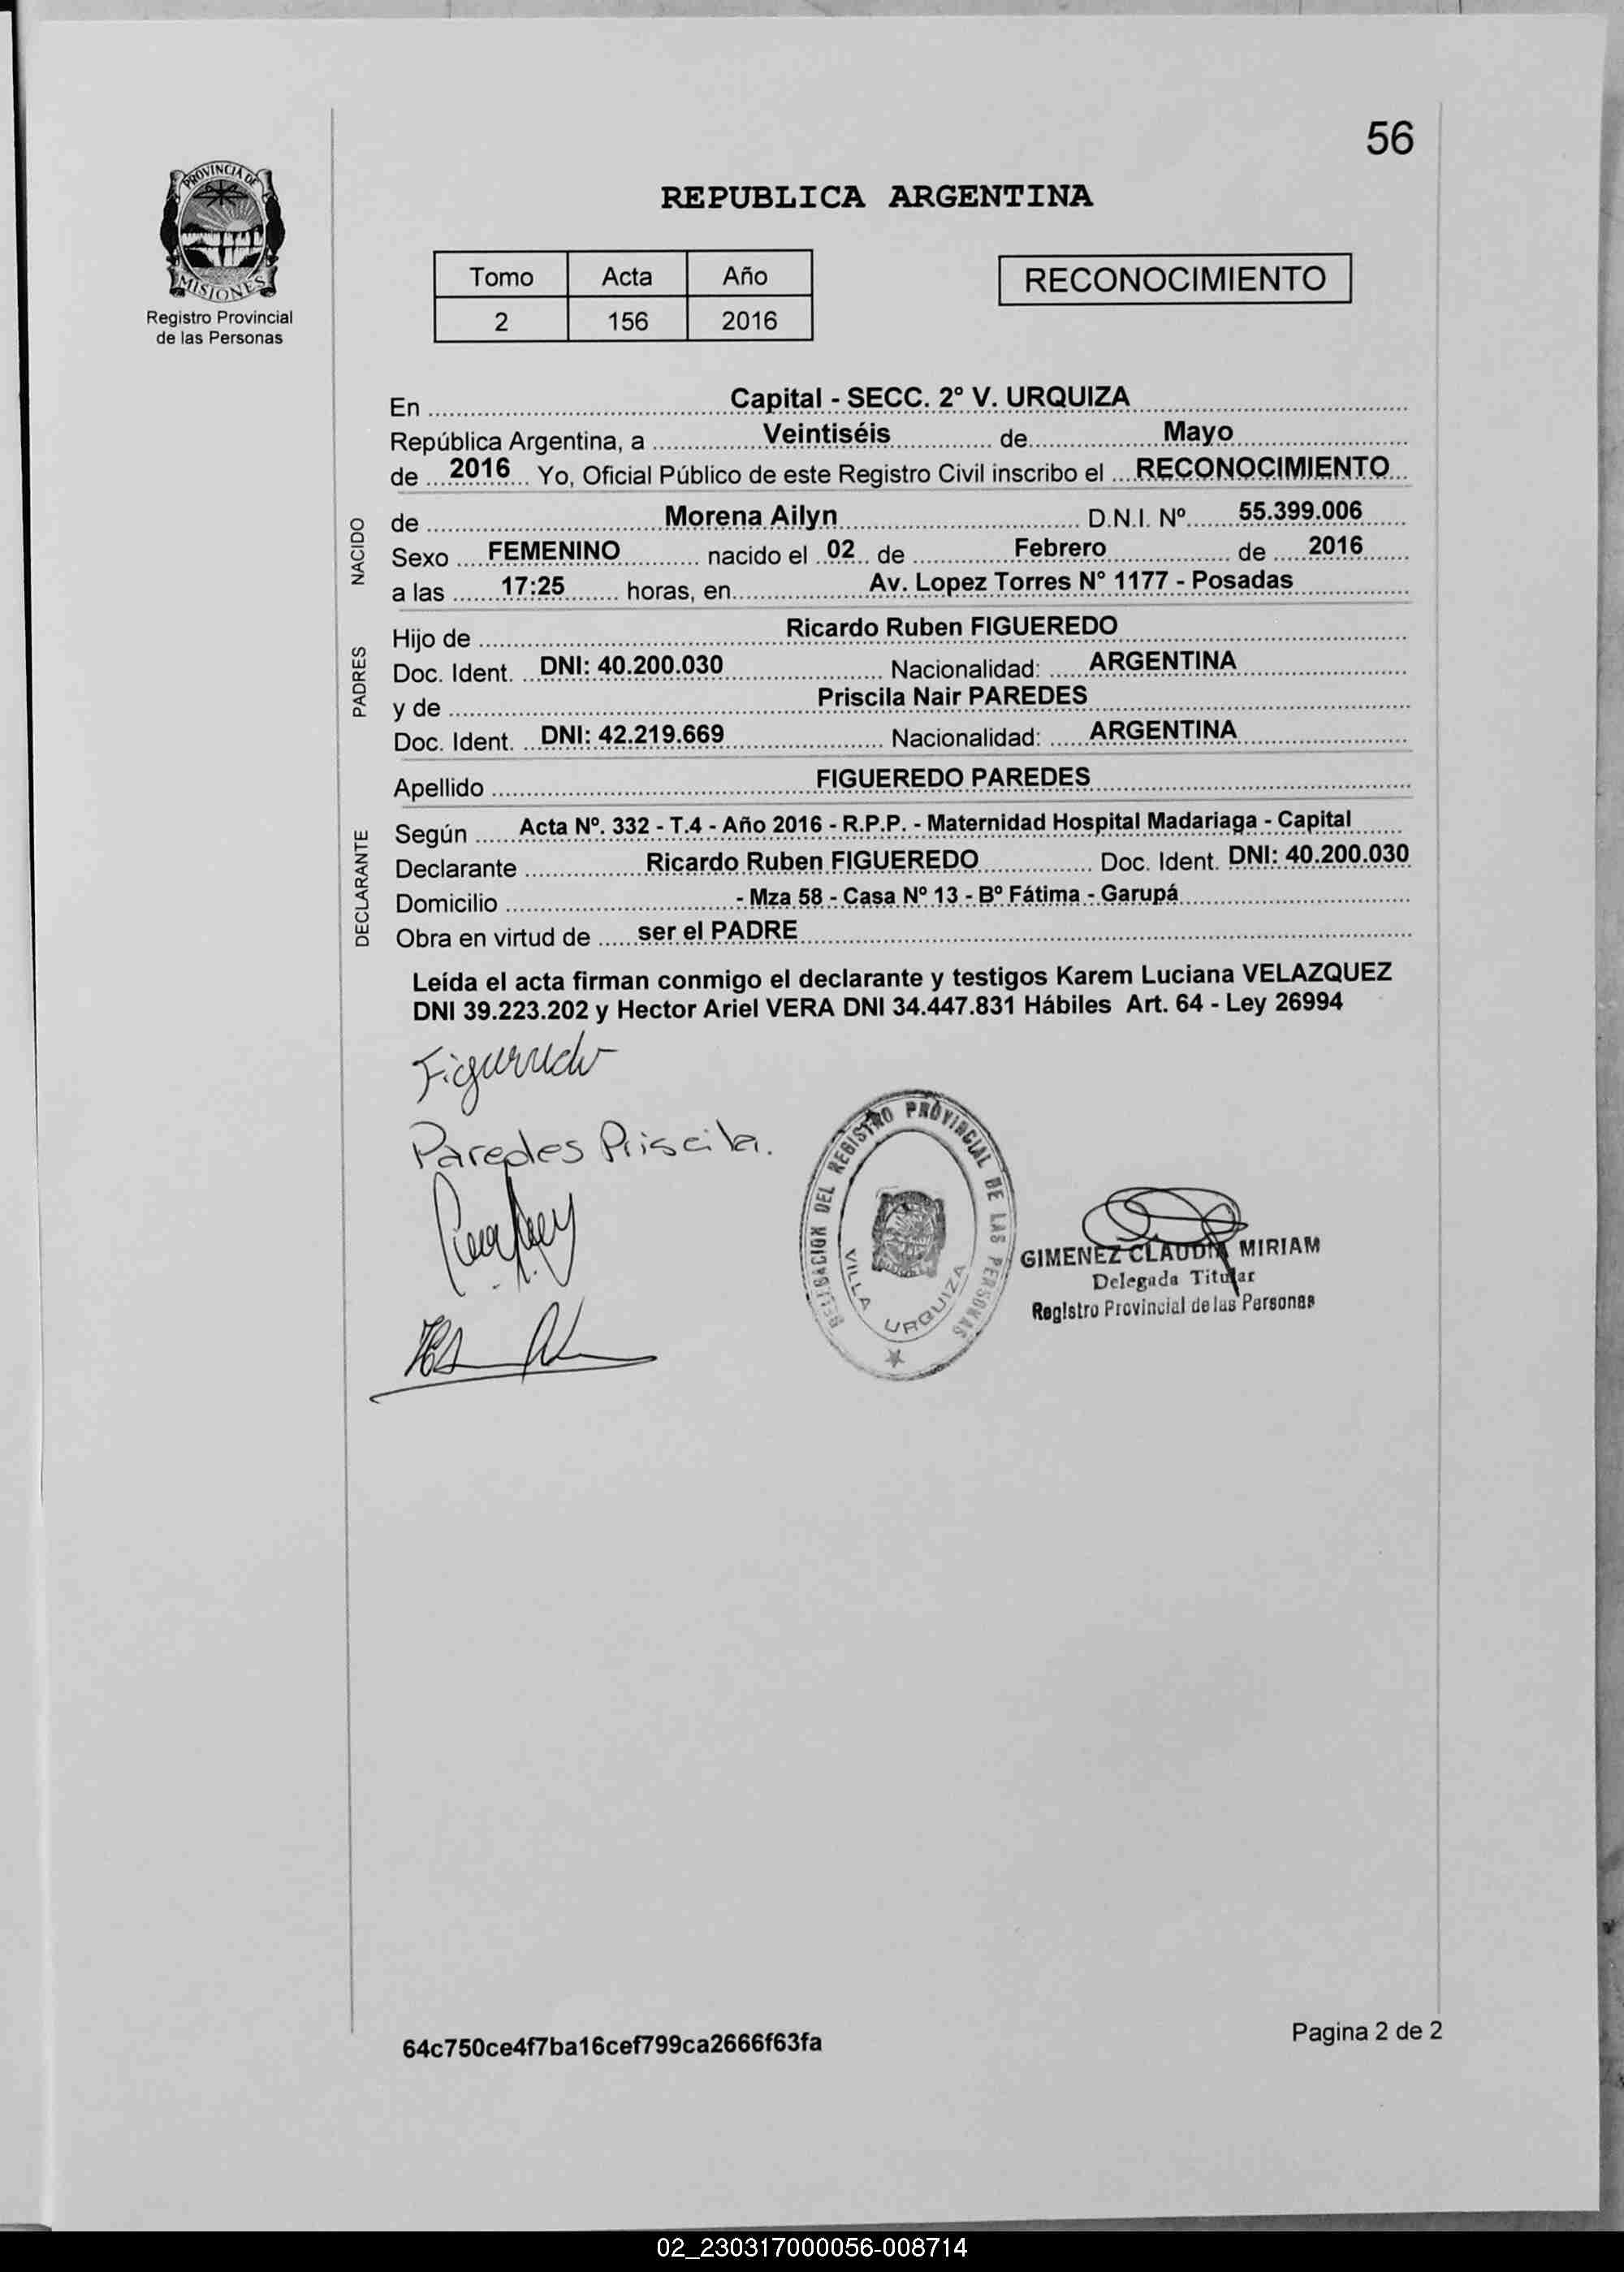 56
PROVINCIA DE
MISIONES
Registro Provincial
de las Personas
REPUBLICA ARGENTINA
Tomo Acta Año
2 156 2016
RECONOCIMIENTO
En Capital - SECC. 2º V. URQUIZA
República Argentina, a Veintiséis de Mayo
de 2016 Yo, Oficial Público de este Registro Civil inscribo el RECONOCIMIENTO
NACIDO
de Morena Ailyn D.N.I. Nº 55.399.006
Sexo FEMENINO nacido el 02 de Febrero de 2016
a las 17:25 horas, en Av. Lopez Torres N° 1177 - Posadas
PADRES
Hijo de Ricardo Ruben FIGUEREDO
Doc. Ident. DNI: 40.200.030 Nacionalidad: ARGENTINA
y de Priscila Nair PAREDES
Doc. Ident. DNI: 42.219.669 Nacionalidad: ARGENTINA
Apellido FIGUEREDO PAREDES
DECLARANTE
Según Acta Nº. 332 - T.4 - Año 2016 - R.P.P. - Maternidad Hospital Madariaga - Capital
Declarante Ricardo Ruben FIGUEREDO Doc. Ident. DNI: 40.200.030
Domicilio - Mza 58 - Casa Nº 13 - Bº Fátima - Garupá
Obra en virtud de ser el PADRE
Leída el acta firman conmigo el declarante y testigos Karem Luciana VELAZQUEZ
DNI 39.223.202 y Hector Ariel VERA DNI 34.447.831 Hábiles Art. 64 - Ley 26994
Paredes Priscila.
DELEGACION DEL REGISTRO PROVINCIAL DE LAS PERSONAS
VILLA URQUIZA
GIMENEZ CLAUDIA MIRIAM
Delegada Titular
Registro Provincial de las Personas
64c750ce4f7ba16cef799ca2666f63fa
Pagina 2 de 2
02_230317000056-008714